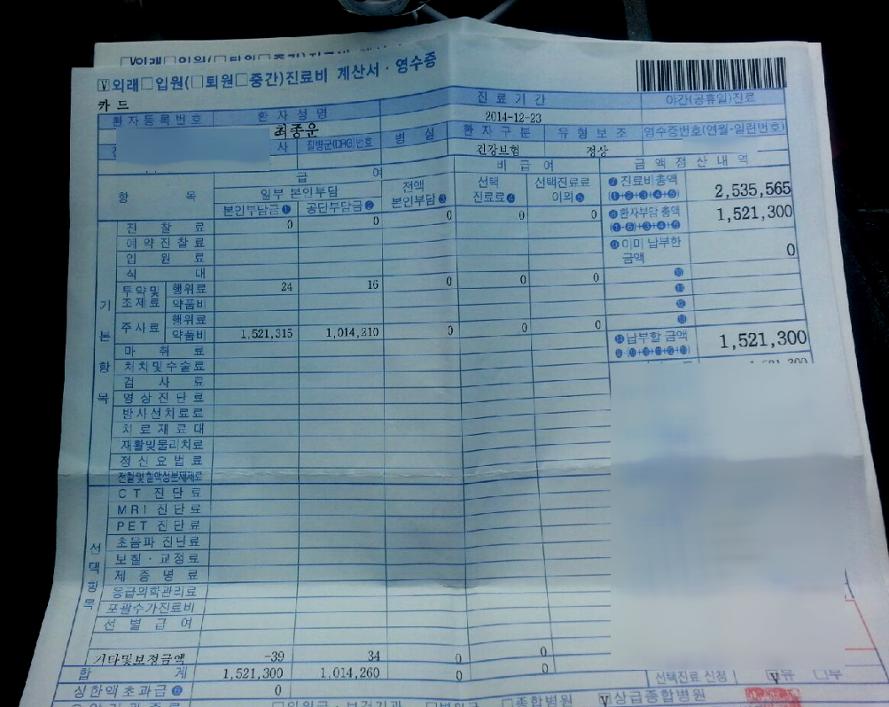 외래□입원(□퇴원□중간)진료비 계산서 · 영수증
카드
환자등록번호 환자성명 진료기간 야간(공휴일)진료
최종운 2014-12-23
질병군(DRG)번호 병실 환자구분 유형보조 영수증번호(연월-일련번호)
건강보험 정상
급여 비급여 금액정산내역
항목 일부 본인부담 전액 본인부담③ 선택 진료료④ 선택진료료 이외⑤
본인부담금① 공단부담금②
⑦진료비총액 (①+②+③+④+⑤) 2,535,565
⑧환자부담 총액 1,521,300
⑨이미 납부한 금액 0
납부할 금액 1,521,300
기본항목
진찰료 0 0 0 0 0
예약진찰료
입원료
식대
투약및 조제료 행위료 24 16 0 0 0
약품비
주사료 행위료
약품비 1,521,315 1,014,210 0 0 0
마취료
처치및수술료
검사료
영상진단료
방사선치료료
치료재료대
재활및물리치료
정신요법료
선택항목
CT 진단료
MRI 진단료
PET 진단료
초음파 진단료
보철·교정료
제증명료
응급의학관리료
포괄수가진료비
선별급여
기타및보정금액 -39 34 0 0
합계 1,521,300 1,014,260 0 0
선택진료 신청 유 □무
상한액초과금 0
□종합병원 상급종합병원